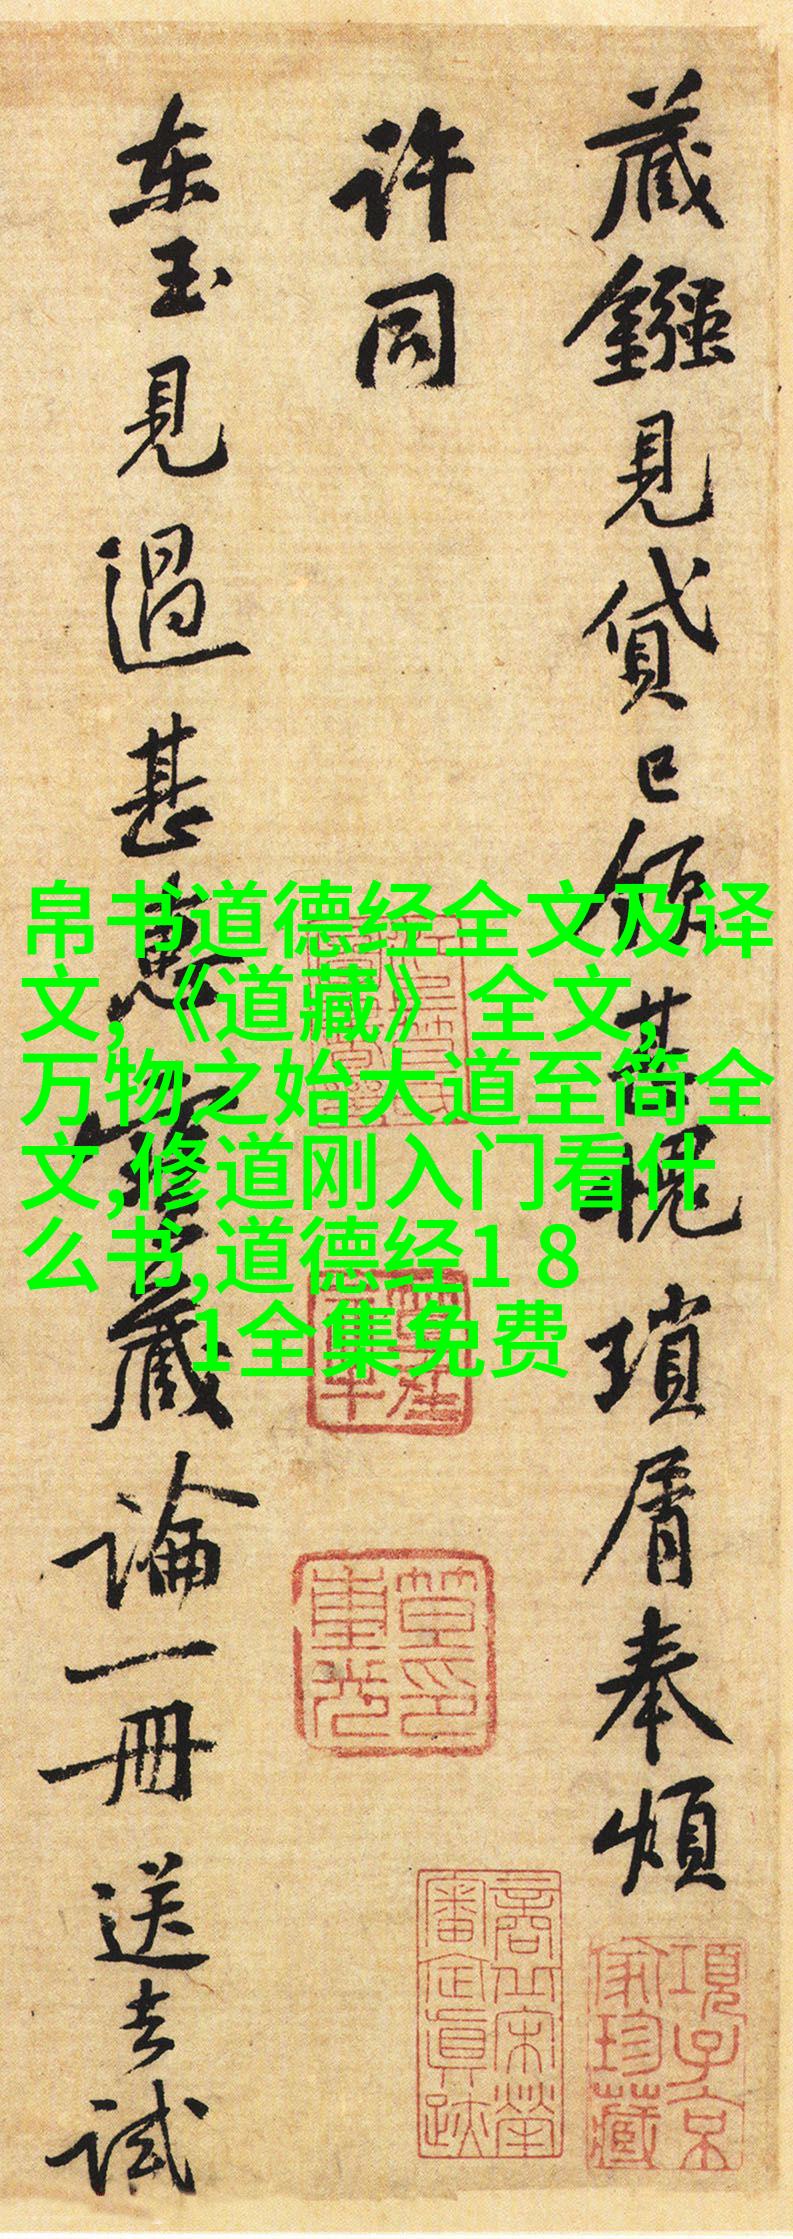 藏鏹見貸已領甚愧瑣屑奉煩
许同
东玉見過甚惠寶藏論一冊送去試
帛书道德经全文及译
文,《道藏》全文,
万物之始大道至简全
文,修道刚入门看什
么书,道德经1 8
1全集免费
笪重光印
商丘宋犖審定真跡
項子京家珍藏